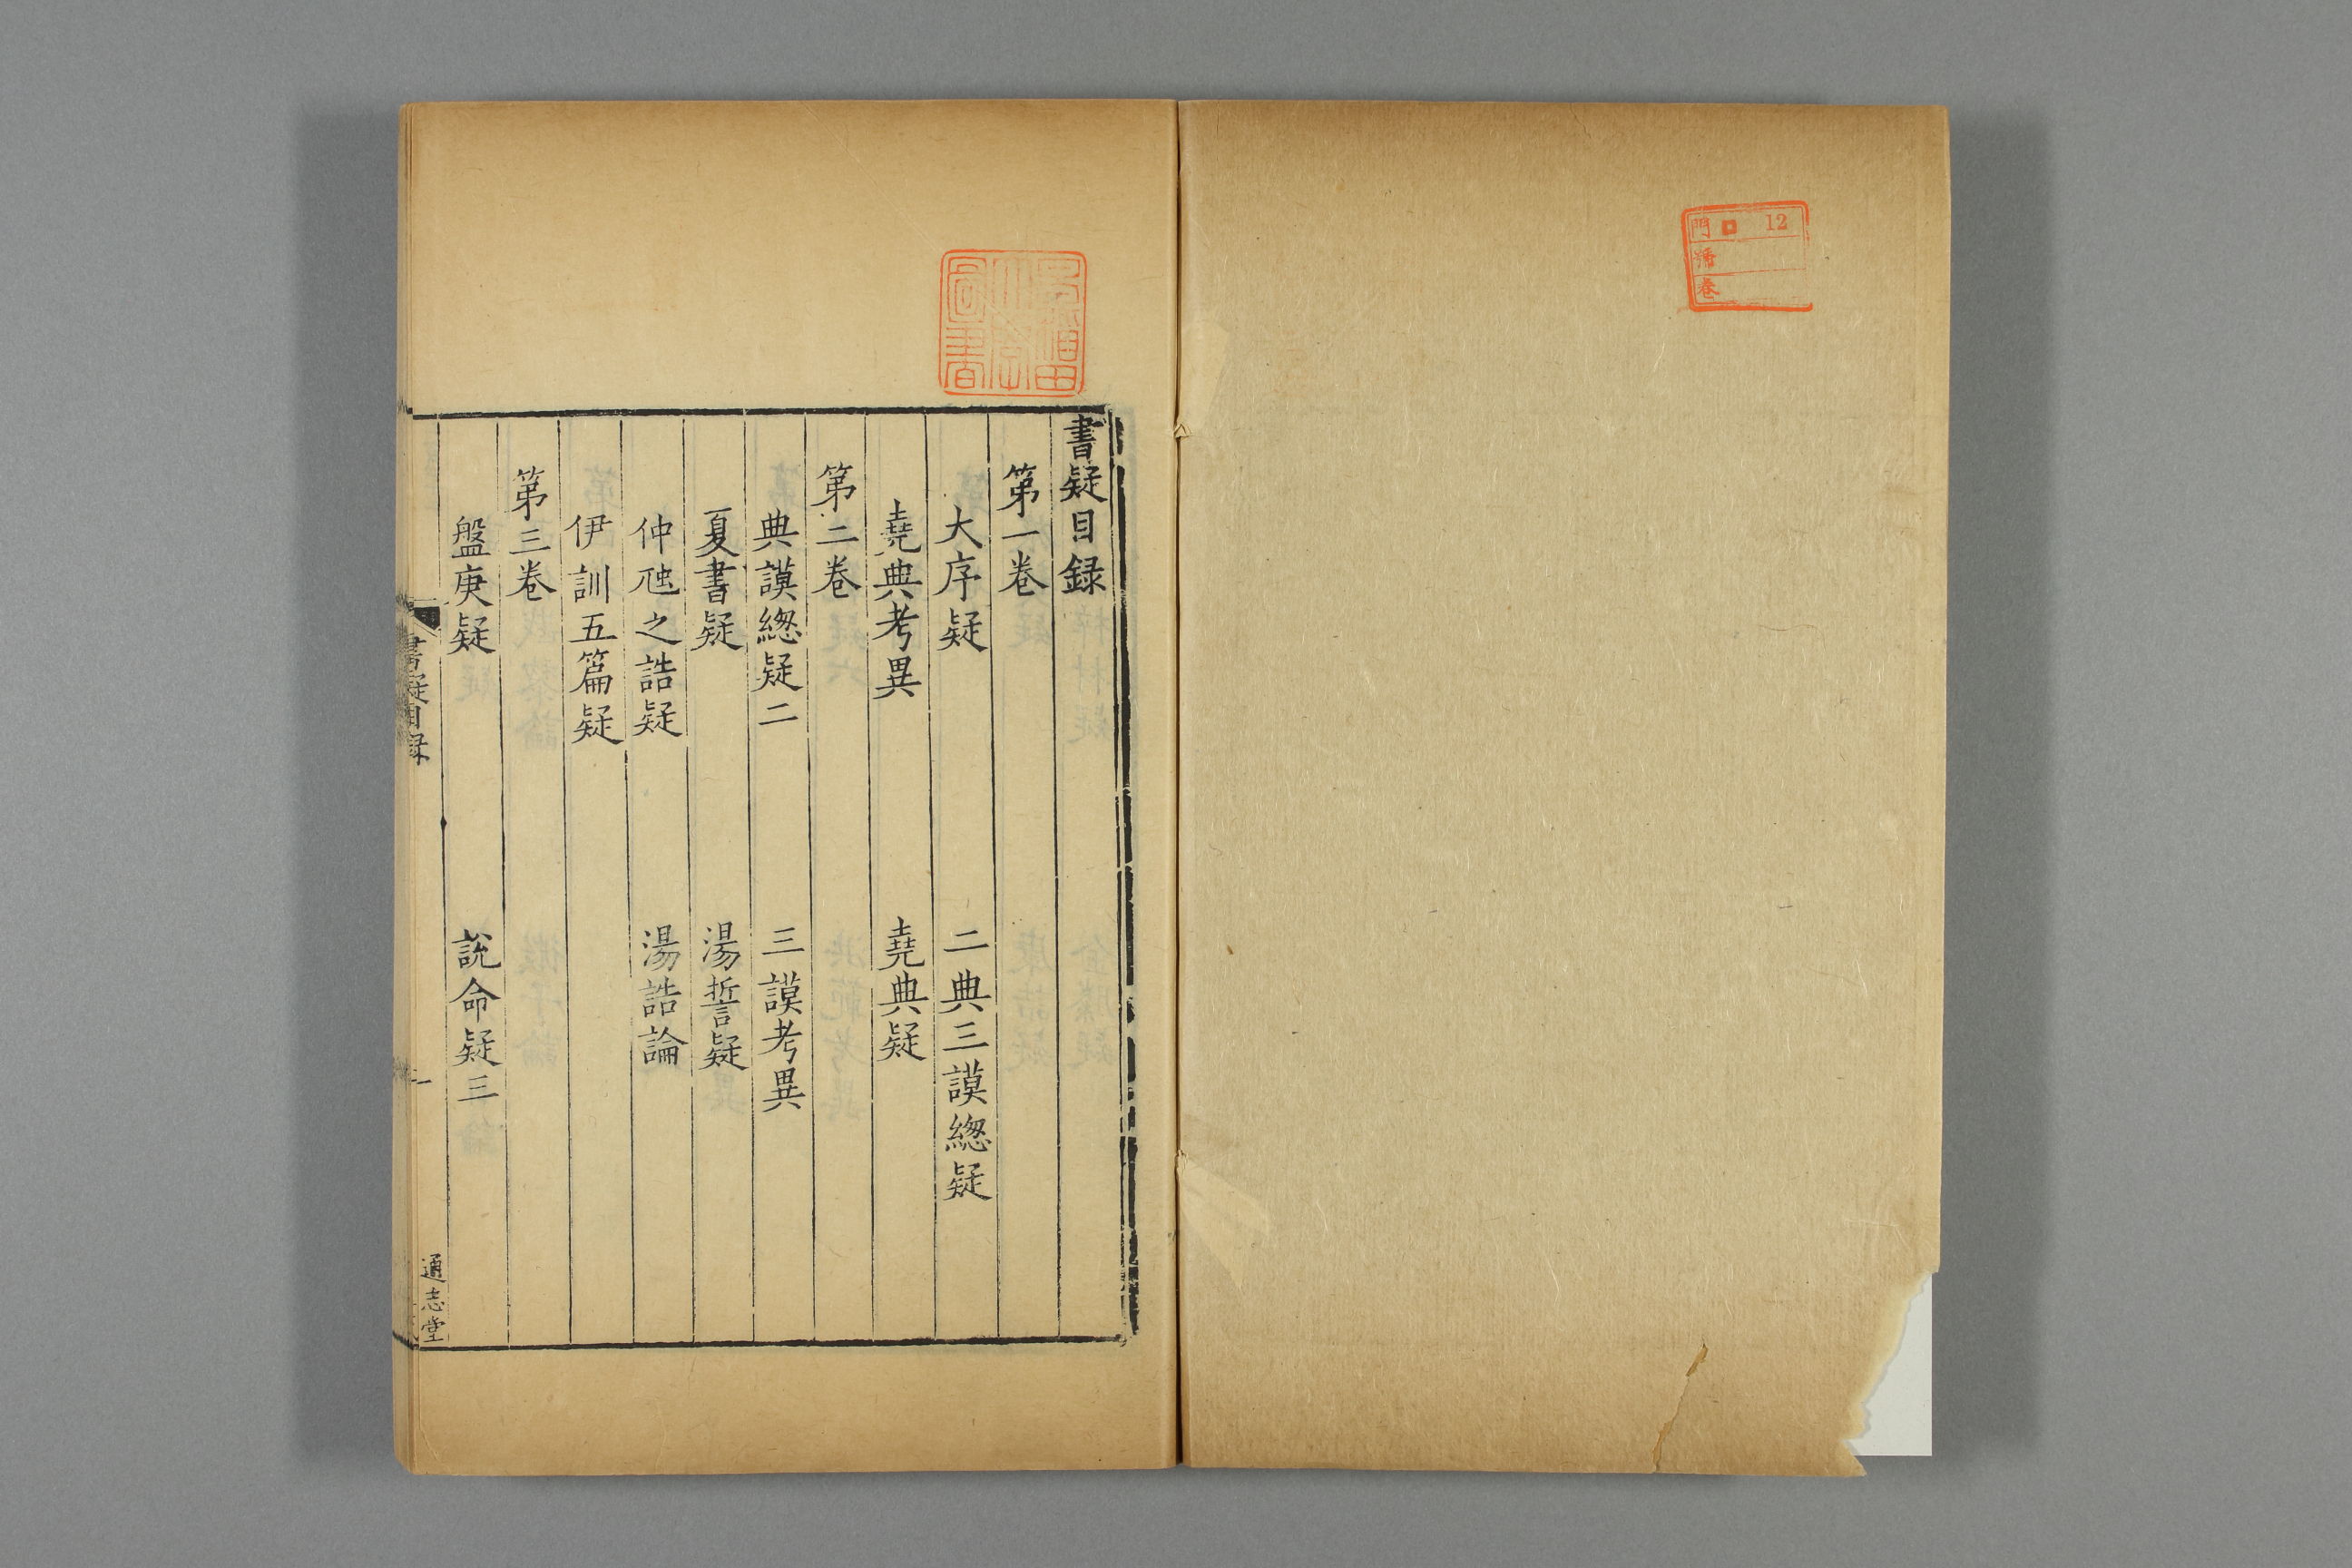 門 口 12
號
卷
早稲田大學圖書
書疑目録
第一卷
大序疑 二典三謨緫疑
堯典考異 堯典疑
第二卷
典謨緫疑二 三謨考異
夏書疑 湯誓疑
仲虺之誥疑 湯誥論
伊訓五篇疑
第三卷
盤庚疑 說命疑三
書疑目録 一 通志堂